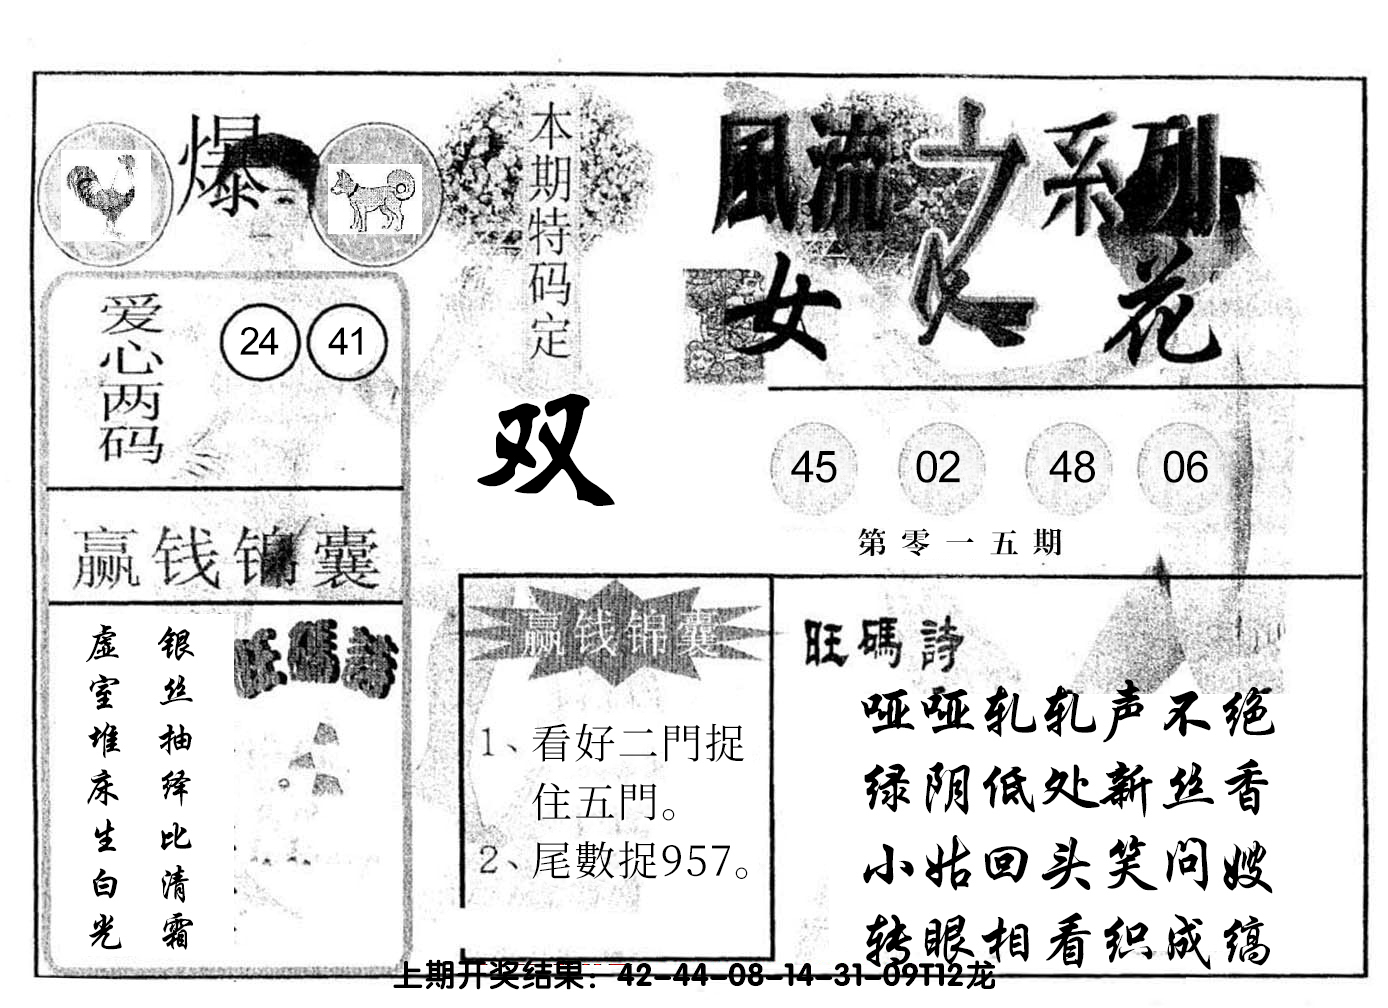 爆
本期特码定
双
風流之系列
女人花
爱心两码
24 41
45 02 48 06
第零一五期
赢钱锦囊
银丝抽绎比清霜
虚室堆床生白光
旺碼詩
赢钱锦囊
1、看好二門捉
住五門。
2、尾數捉957。
旺碼詩
哑哑轧轧声不绝
绿阴低处新丝香
小姑回头笑问嫂
转眼相看织成缟
上期开奖结果：42-44-08-14-31-09T12龙